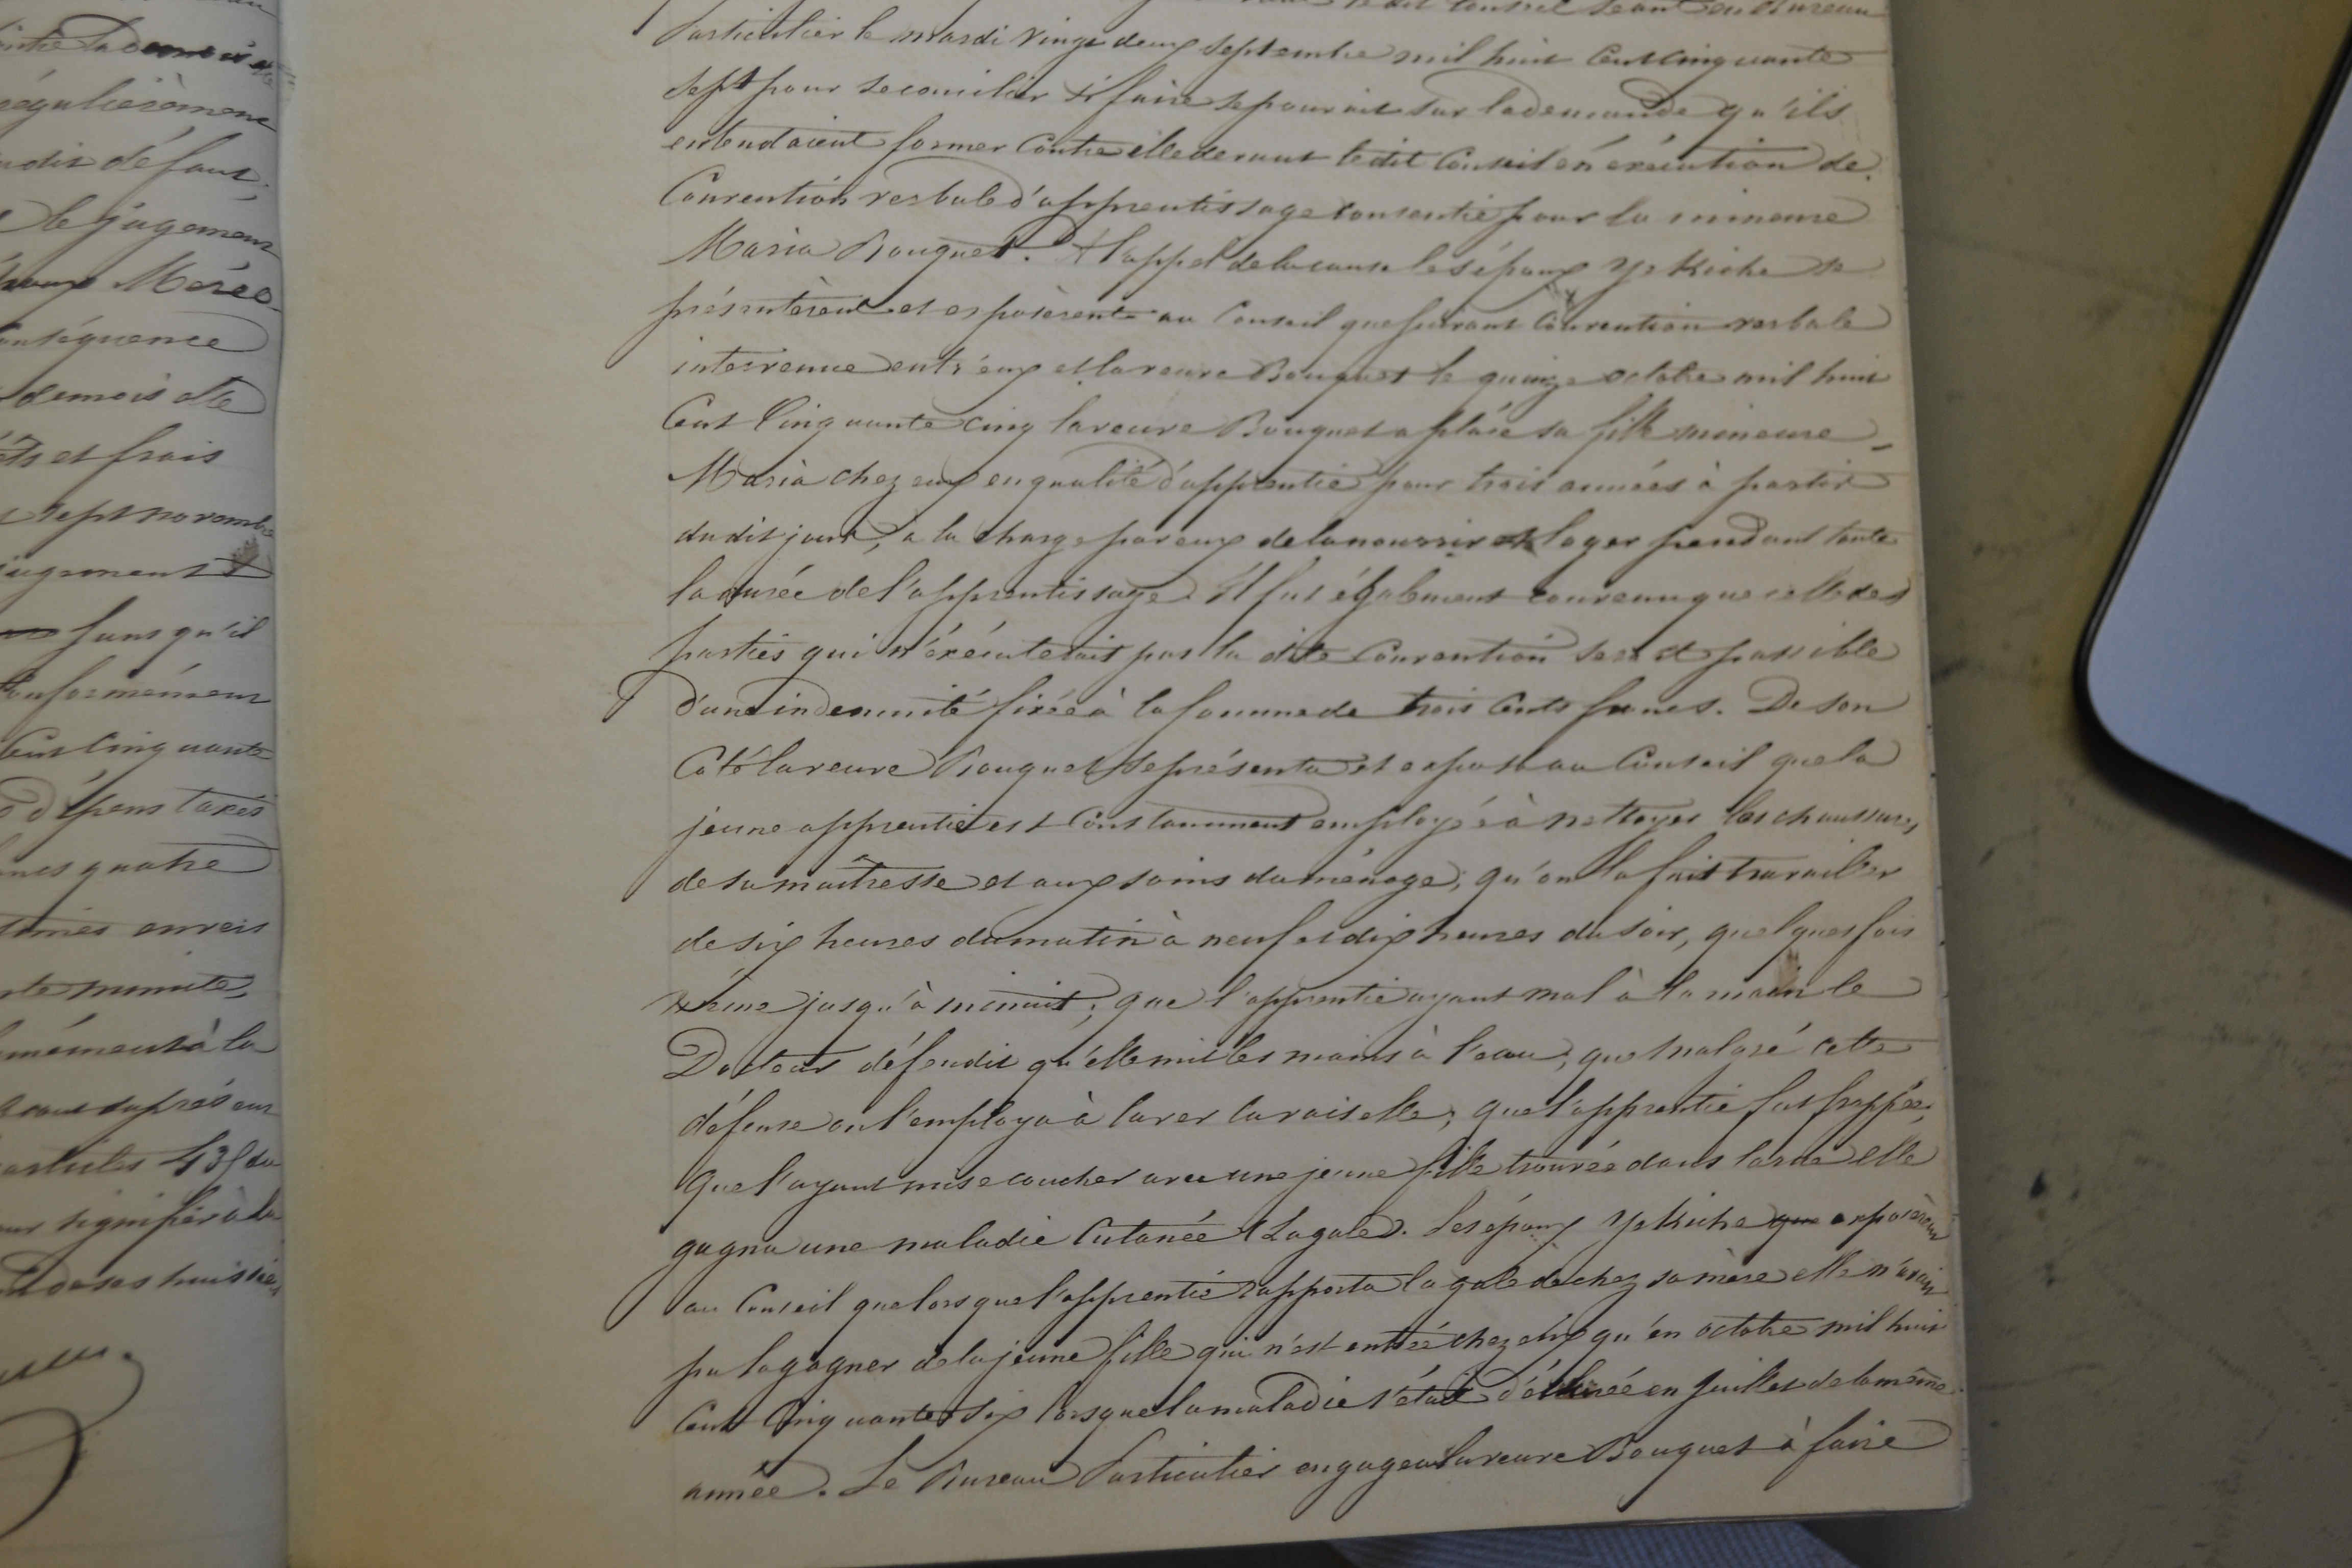 ledit Conseil séant en Bureau
Particulier le mardi vingt deux septembre mil huit Cent Cinquante
Sept pour se concilier si faire se pourrait sur la demande qu'ils
entendaient former Contre elle devant le dit Conseil en exécution de
Convention verbale d'apprentissage consentie pour la mineure
Maria Bouquet. A l'appel de la cause les époux Ye Kiche se
présentèrent et exposèrent au Conseil que suivant Convention verbale
intervenue entr'eux et la veuve Bouquet le quinze octobre mil huit
Cent Cinquante cinq la veuve Bouquet a placé sa fille mineure
Maria chez eux en qualité d'apprentie pour trois années à partir
du dit jour, a la charge par eux de la nourrir et loger pendant toute
la durée de l'apprentissage. Il fut également convenu que celle des
parties qui n'exécuterait pas la dite Convention serait passible
d'une indemnité fixée à la somme de trois Cents francs. De son
Côté la veuve Bouquet se présenta et exposa au Conseil que la
jeune apprentie est Constamment employée à nettoyer les chaussures
de sa maîtresse et aux soins du ménage; qu'on la fait travailler
de six heures du matin à neuf et dix heures du soir, quelques fois
même jusqu'à minuit; que l'apprentie ayant mal à la main le
Docteur défendit qu'elle mit les mains à l'eau; que malgré cette
défense on l'employa à laver la vaiselle; que l'apprentie fut frappée;
que l'ayant mise coucher avec une jeune fille trouvée dans la rue elle
gagna une maladie Cutanée (La gale). Les époux Ye Kiche que exposèrent
au Conseil que lorsque l'apprentie rapporta la gale de chez sa mère elle n'avait
pu la gagner de la jeune fille qui n'est entrée chez eux qu'en octobre mil huit
Cent Cinquante six lorsque la maladie s'était déclarée en juillet de la même
année. Le Bureau Particulier engagea la veuve Bouquet à faire
régulièrement
dit défaut;
le jugement
Conséquence
demoiselle
et frais
sept novembre
jugement
sans qu'il
Conformément
Cent Cinquante
dépens taxés
quatre
envers
minute,
à la
articles 435 du
signifier à la
de ses huissiers